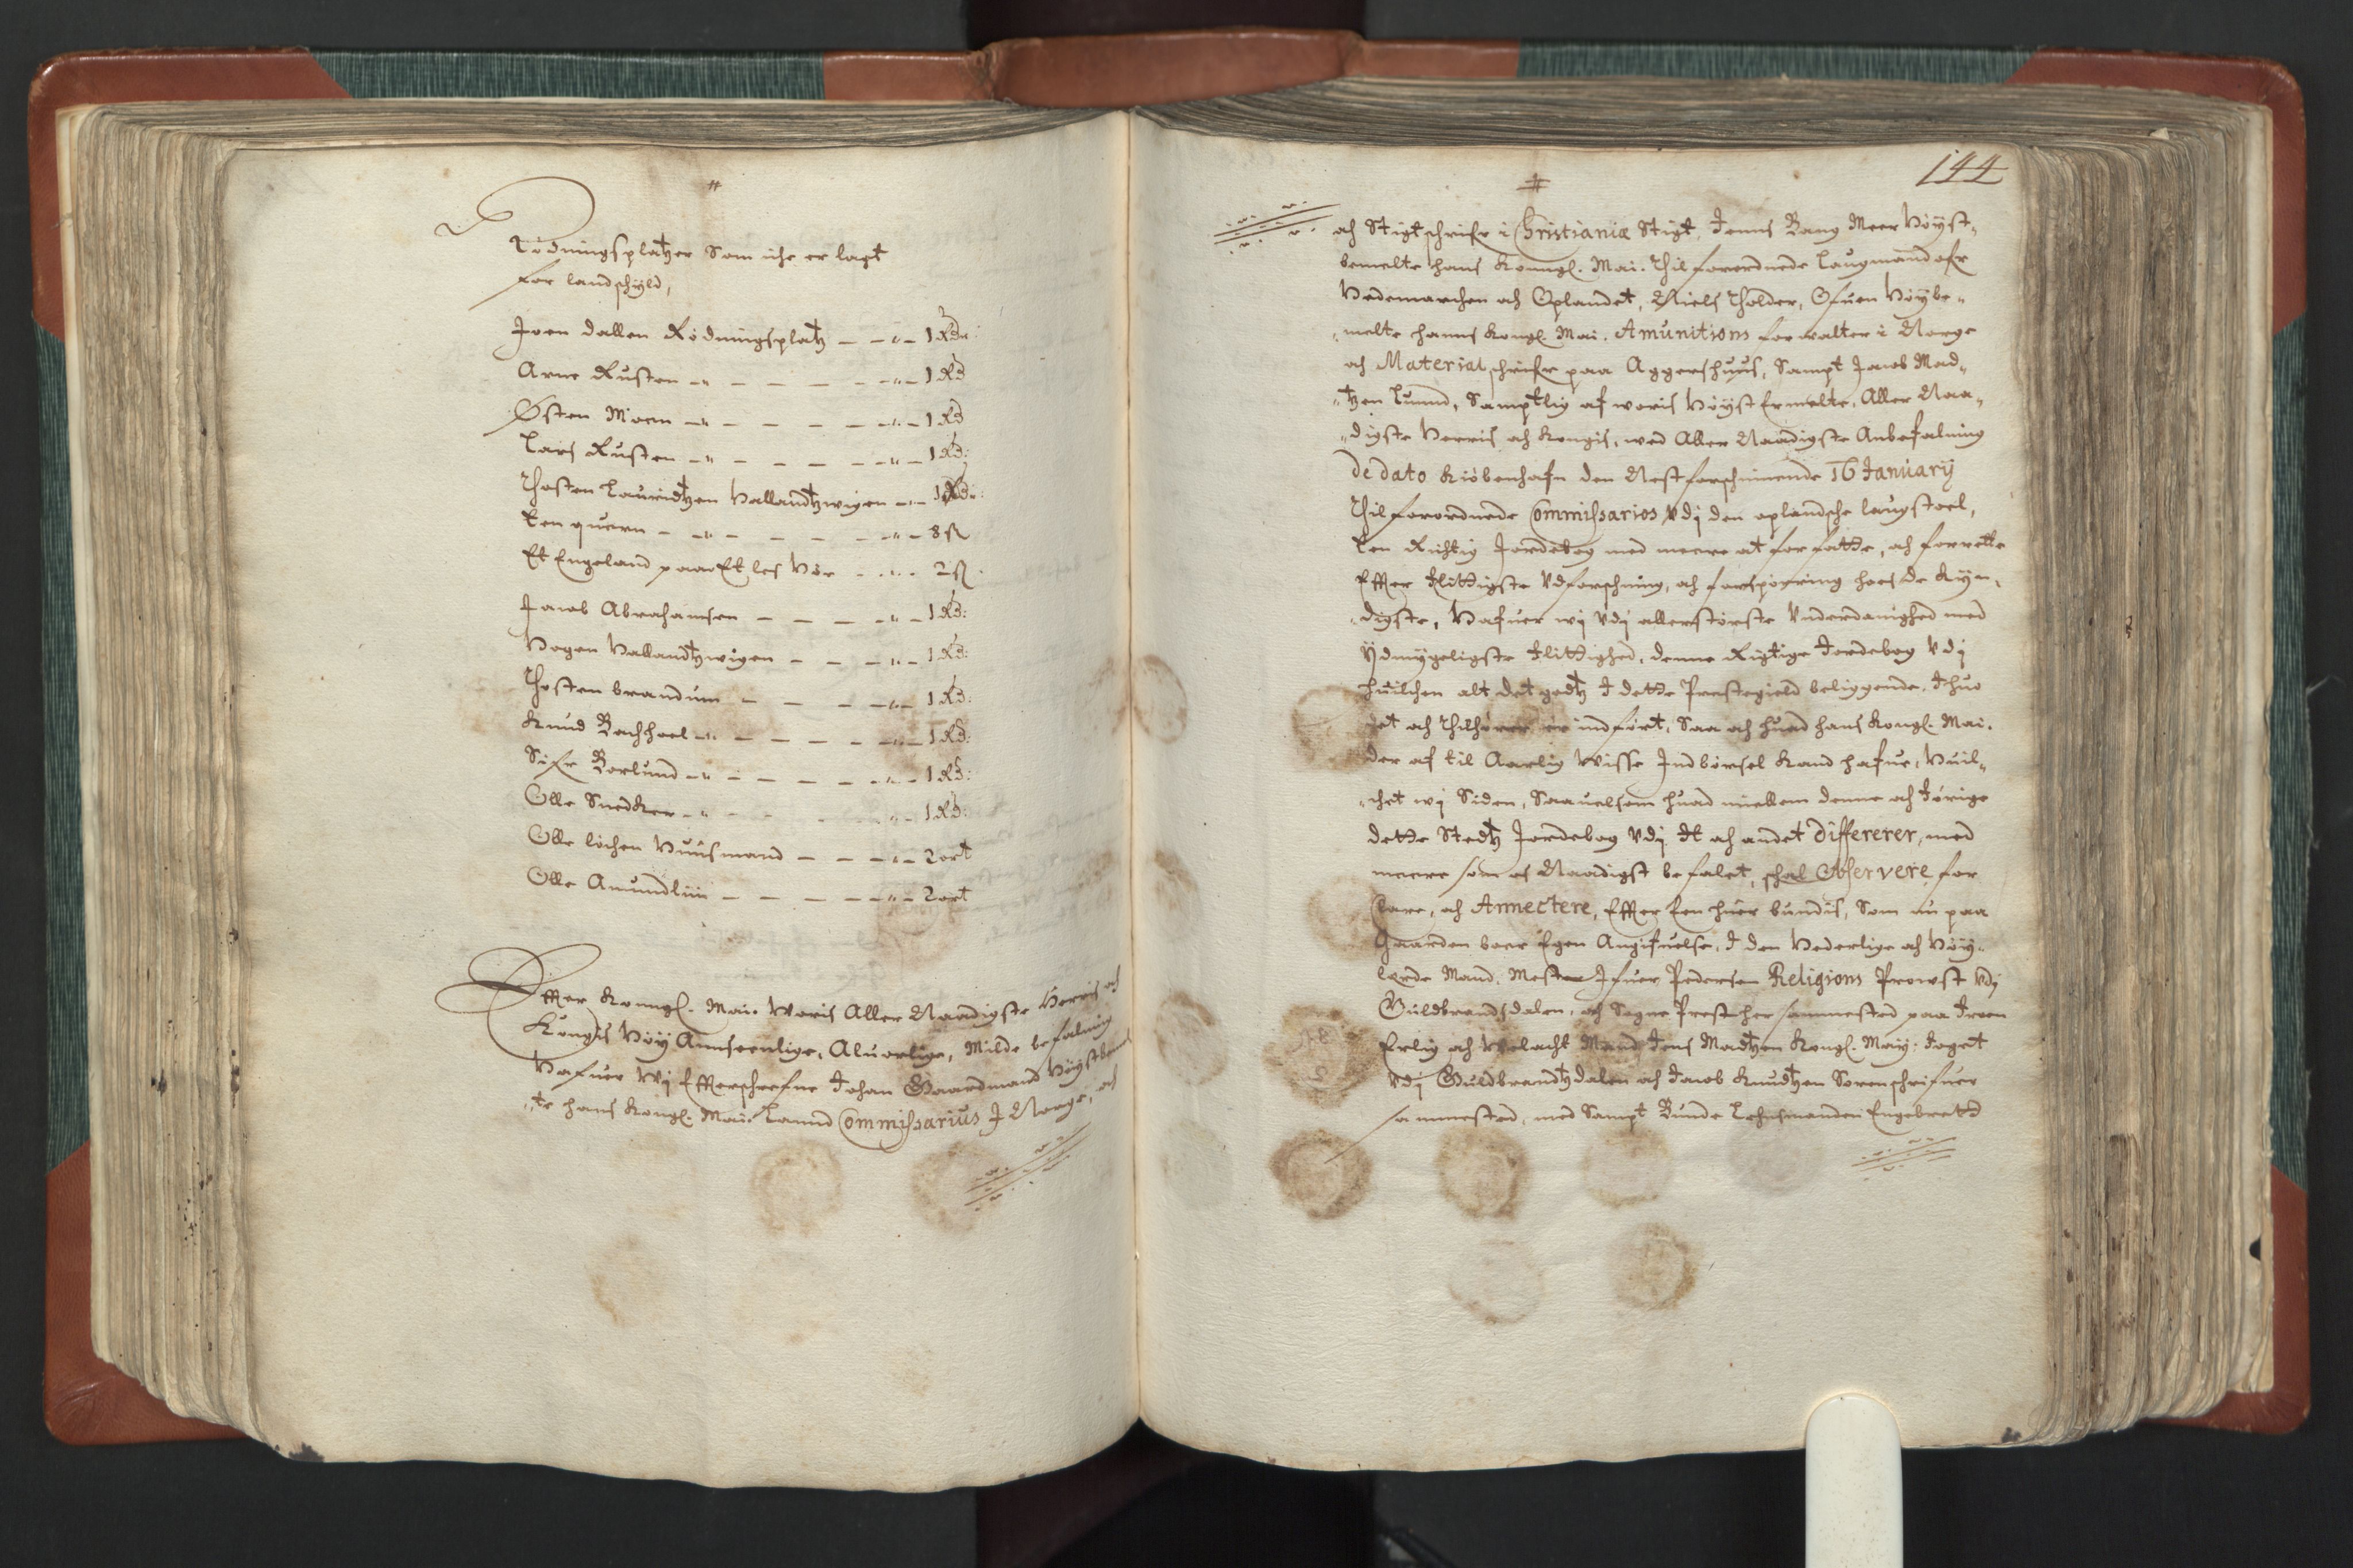 Rödningsplatzer Som iche er lagt
for landschÿld,
Joen dallen Rödningsplatz — — " — 1 Rdr:
Arne Rusten — " — — — — — " — 1 Rd
Østen Moen — " — — — — — " — 1 Rd
Lars Rusten — " — — — — — " — 1 Rd:
Thosten Lauridtzen Hallandtzwigen — " — 1 Rdr:
Een quern — — " — — — — " — 8 ß
Et Engeland paa Et les Høe . . " . . 2 ß
Jacob Abrahamsen — — — — " — 1 Rd:
Hogen Hallandtzwigen — — — " — 1 Rd:
Thosten brandum — — — — " — 1 Rd:
Knud Bachhoel — " — — — — — " — 1 Rd:
Sifr Borlund — " — — — — — " — 1 Rd:
Olle Snedker — " — — — " — 1 Rd:
Olle löchen Huusmand — — — " — 2 ort
Olle Amundlin — — — — — " — 2 ort
Effter Konngl. Mai. Woris Aller Naadigste Herris och
Kongis Höÿ Annseenlige, Aluorlige, Milde befaling
Hafuer Wj Effterschrefne Johan Gaardmand Höÿstbemel
"te hans Kongl. Mai. Lannd Commissarius J Norge, och
144
och Stigtschrifr i Christianiæ Stigt, Jenns Bang Meer Höÿst"
bemelte hans Konngl. Mai. Thilforordnede Laugmand ofr
Hedemarchen och Oplandet, Niels Tholder, Ofuen Höÿbe"
"melte hanns Kongl. Mai. Amunitions forwalter i Norge
och Material schrifr paa Aggershuus, Sampt Jacob Mad"
"tzen Luund, Samptlig af woris Höÿst Ermelte, Aller Naa"
"digste Herris och Kongis, wed Aller Naadigste Anbefalning
De dato Kiöbenhafn den Nestforschinende 16 Januarÿ
Thilforordnede Commissarios Vdj den oplandsche laugstoel,
Een Richtig Jordebog med meere at forfatte, och forrette
Effter flittigste Vdforschning, och forspörring hoes de Kÿn"
"digste, Hafuer wj Vdj allerstörste Vnderdanighed med
Ÿdmÿgeligste flittighed, denne Rigtige Jordebog Vdj
huilchen alt det godtz J dette Prestegield beliggende, Jhuo
det och Thilhører er indført, Saa och huad hans Kongl. Mai.
der af til Aarlig Wisse Jndbörsel Kand hafue, Huil"
"chet wj Siden, Saauelsom huad imellem denne och förige
dette Stedtz Jordebog Vdj Jt och andet Differerer, med
meere som os Naadigst befalet, schal Observere, for
Clare, och Annectere, Effter Een huer bundis, Som nu paa
Gaarden boer Egen Angifuelse, J den Hederlige och Höÿ"
lerde Mand, Mester Jfuer Pedersen Religions Prowst Vdj
Guldbrandsdalen, och Sogne Prest her sammested paa Froen
Erlig och Welacht Mand Jens Madtzen Kongl. Maÿ: foget
Vdj Guldbrandtzdalen och Jacob Knudtzen Sorenschrifuer
sammested, med Sampt Bunde Lehnsmanden Engebrett